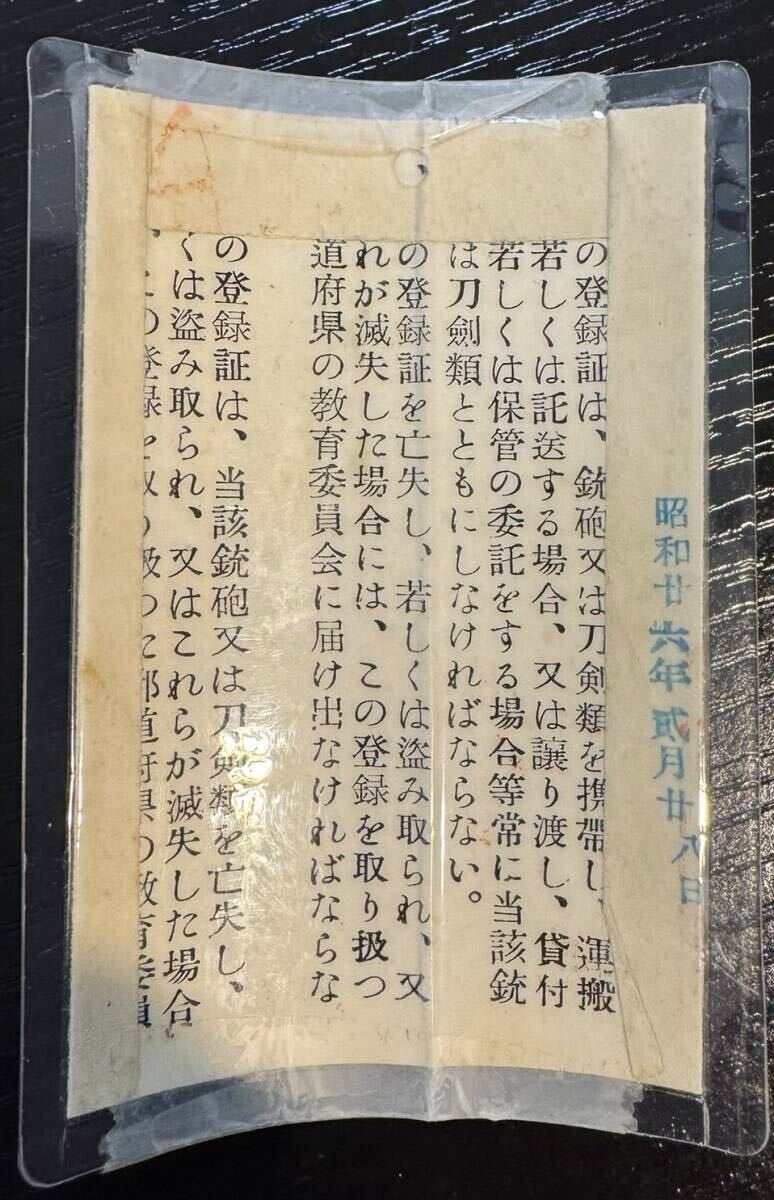 昭和廿六年貮月廿八日
の登録証は、銃砲又は刀剣類を携帯し、運搬
若しくは託送する場合、又は譲り渡し、貸付
若しくは保管の委託をする場合等常に当該銃
は刀劍類とともにしなければならない。
の登録証を亡失し、若しくは盗み取られ、又
れが滅失した場合には、この登録を取り扱つ
道府県の教育委員会に届け出なければならな
の登録証は、当該銃砲又は刀剣類を亡失し、
くは盗み取られ、又はこれらが滅失した場合
この登録を取り扱つた都道府県の教育委員